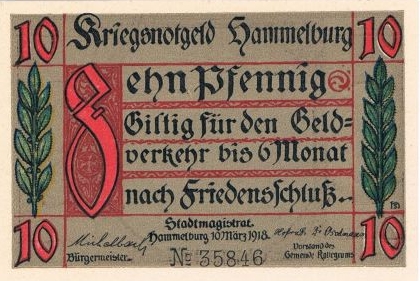 10 Kriegsnotgeld Hammelburg 10
Zehn Pfennig
Giltig für den Geld=
verkehr bis 6 Monat
nach Friedensschluß..
Stadtmagistrat
Hammelburg 10 März 1918.
Bürgermeister
Vorstand des
Gemeinde
10 № 35846 10